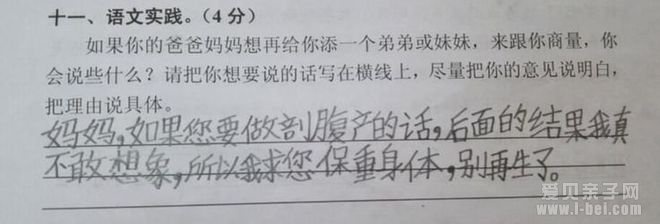 十一、语文实践。(4 分)
如果你的爸爸妈妈想再给你添一个弟弟或妹妹，来跟你商量，你
会说些什么？请把你想要说的话写在横线上，尽量把你的意见说明白，
把理由说具体。
妈妈，如果您要做剖腹产的话，后面的结果我真
不敢想象，所以我求您保重身体，别再生了。
爱贝亲子网
www.i-bei.com